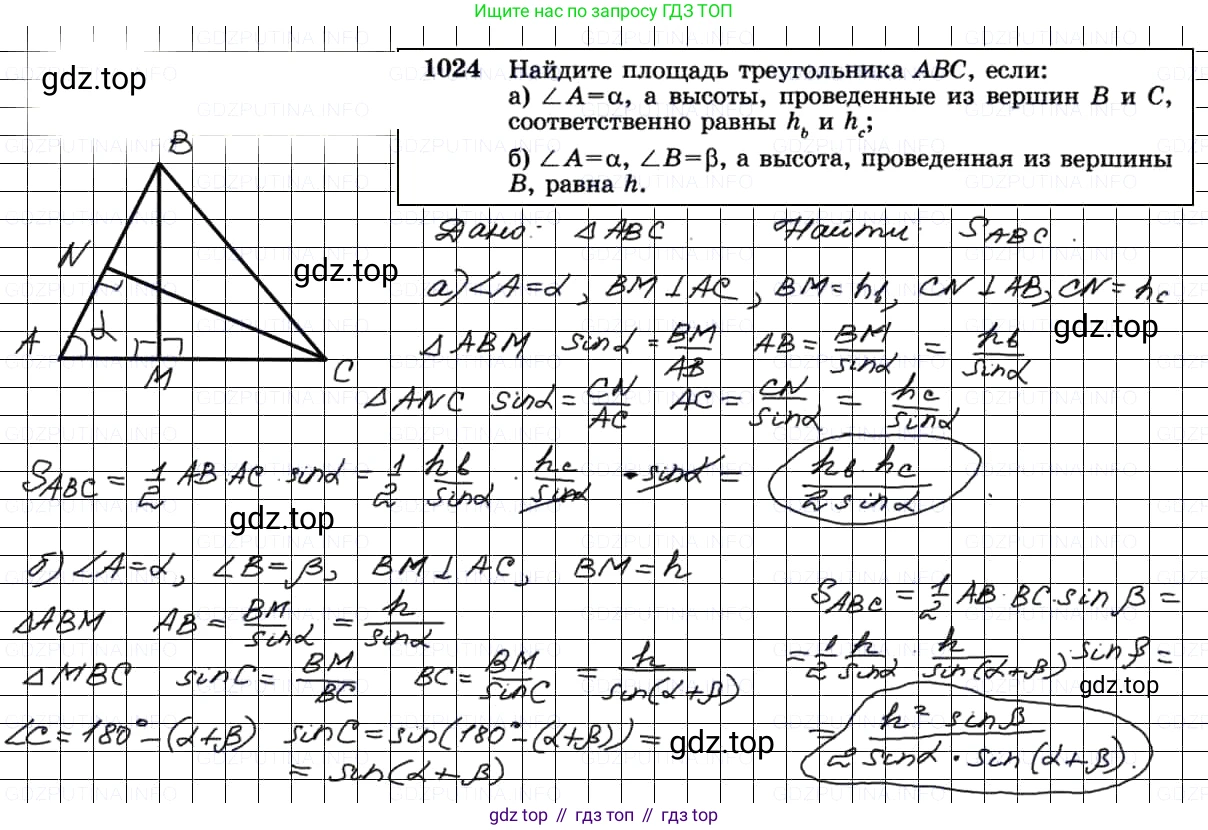 Ищите нас по запросу ГДЗ ТОП
gdz.top
1024 Найдите площадь треугольника ABC, если:
а) ∠A=α, а высоты, проведенные из вершин B и C,
соответственно равны h_b и h_c;
б) ∠A=α, ∠B=β, а высота, проведенная из вершины
B, равна h.
B
N
A
α
M
C
gdz.top
Дано: △ABC. Найти: S_ABC.
а) ∠A=α, BM⊥AC, BM=h_b, CN⊥AB, CN=h_c
gdz.top
△ABM sinα = BM/AB AB = BM/sinα = h_b/sinα
△ANC sinα = CN/AC AC = CN/sinα = h_c/sinα
S_ABC = 1/2 AB·AC·sinα = 1/2 h_b/sinα · h_c/sinα · sinα = h_b·h_c/2sinα.
gdz.top
б) ∠A=α, ∠B=β, BM⊥AC, BM=h
△ABM AB = BM/sinα = h/sinα
△MBC sinC = BM/BC BC = BM/sinC = h/sin(α+β)
∠C = 180°-(α+β) sinC = sin(180°-(α+β)) =
= sin(α+β)
gdz.top
S_ABC = 1/2 AB·BC·sinβ =
= 1/2 h/sinα · h/sin(α+β) · sinβ =
gdz.top
= h² sinβ/2sinα·sin(α+β).
gdz.top // гдз топ // gdz.top
GDZPUTINA.INFO